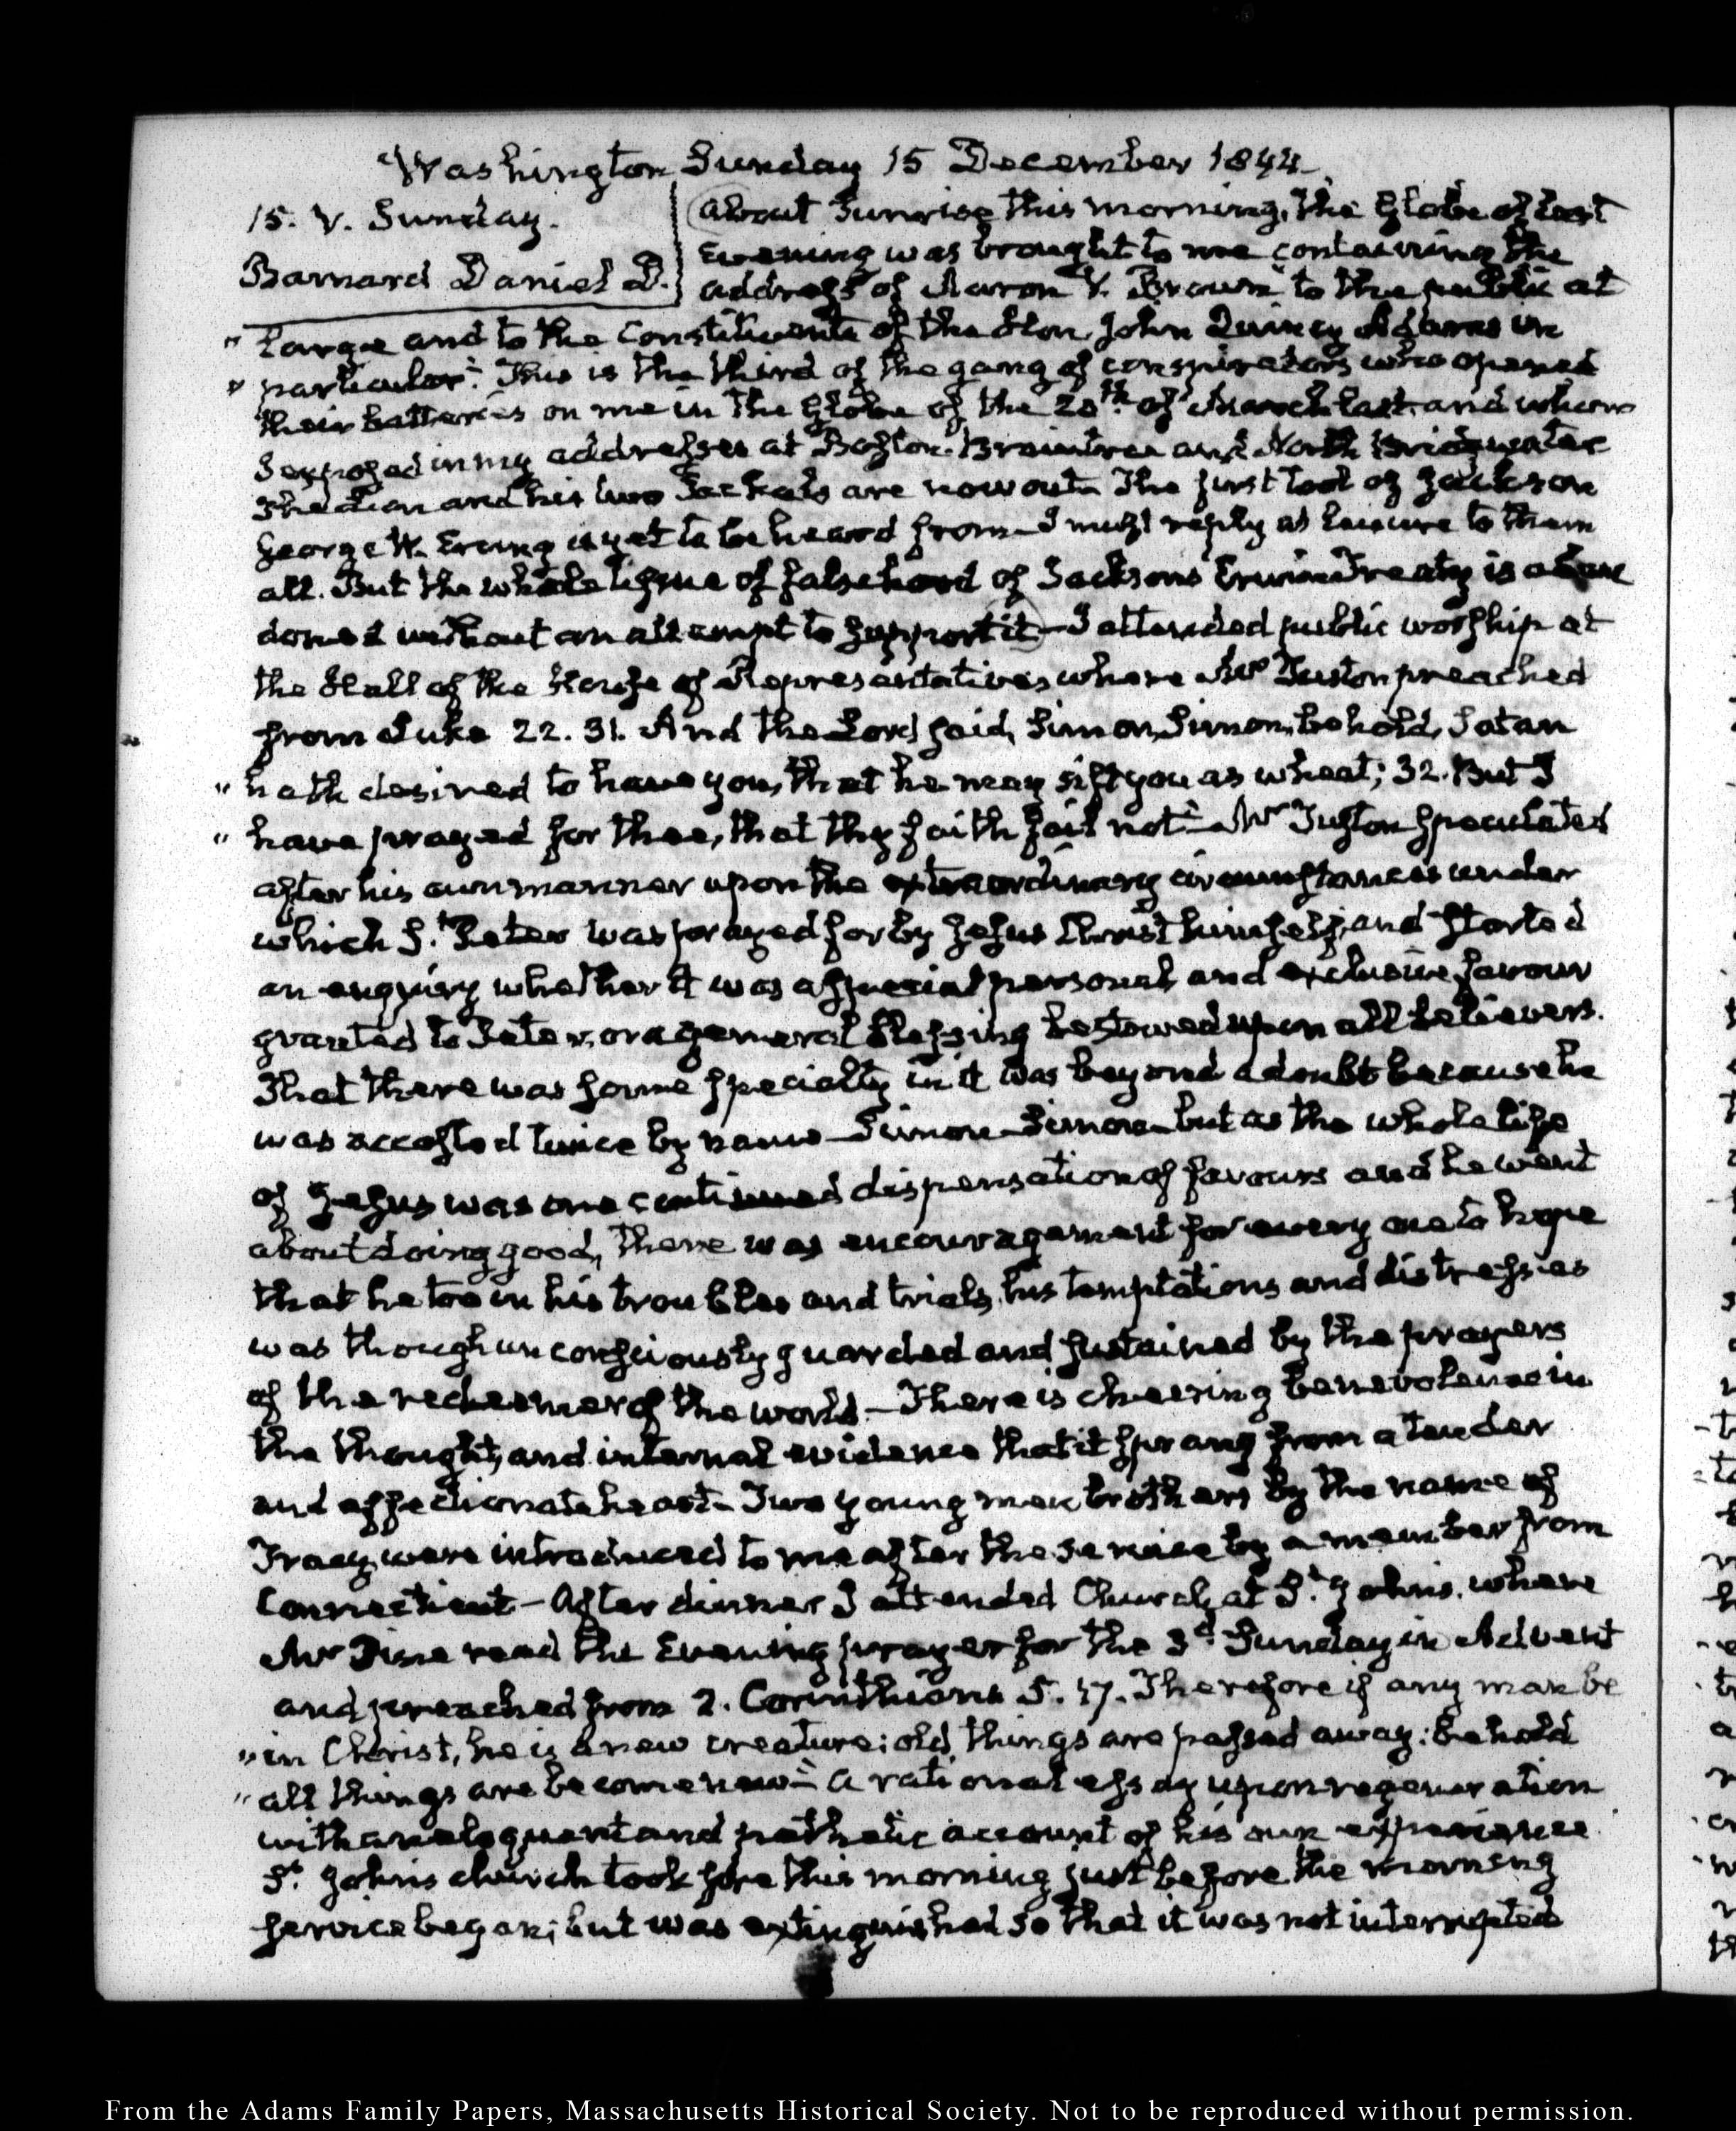 Washington Sunday 15 December 1844.
15. V. Sunday.
Barnard Daniel D.
About Sunrise this morning, the Globe of last
evening was brought to me containing the
address of Aaron V. Brown "to the public at
" large and to the Constituents of the Hon. John Quincy Adams in
" particular." This is the third of the gang of conspirators who opened
their batteries on me in the Globe of the 20th. of March last and whom
I exposed in my addresses at Boston. Braintree and North Bridgwater
The Lion and his two Jackals are now out. The first tool of Jackson
George W. Erving is yet to be heard from—I must reply at leisure to them
all. But the whole tissue of falsehood of Jacksons Erving Treaty is aban
doned without an attempt to support it—I attended public worship at
the Hall of the House of Representatives where Mr Tuston preached
from Luke 22. 31. And the Lord said, Simon, Simon, behold, Satan
" hath desired to have you, that he may sift you as wheat; 32. But I
" have prayed for thee, that thy faith fail not"—Mr Tuston speculated
after his own manner upon the extraordinary circumstances under
which St. Peter was prayed for by Jesus Christ himself, and started
an enquiry whether it was a special personal and exclusive favour
granted to Peter, or a general blessing bestowed upon all believers.
That there was some specialty in it was beyond a doubt because he
was accosted twice by name—Simon—Simon—but as the whole life
of Jesus was one continued dispensation of favours and he went
about doing good, there was encouragement for every one to hope
that he too in his troubles and trials, his temptations and distresses
was though unconsciously guarded and sustained by the prayers
of the redeemer of the world.—There is cheering benevolence in
the thought, and internal evidence that it sprang from a tender
and affectionate heart—Two young men brothers by the name of
Tracy, were introduced to me after the service by a member from
Connecticut—After dinner I attended Church, at St. Johns. where
Mr read the Evening prayer for the 3d. Sunday in Advent
and preached from 2. Corinthians 5. 17. Therefore if any man be
" in Christ, he is a new creature: old things are passed away: behold
" all things are become new"—a rational essay upon regeneration
with an eloquent and pathetic account of his own experience
St. Johns church took fire this morning just before the morning
service began; but was extinguished so that it was not interrupted
From the Adams Family Papers, Massachusetts Historical Society. Not to be reproduced without permission.